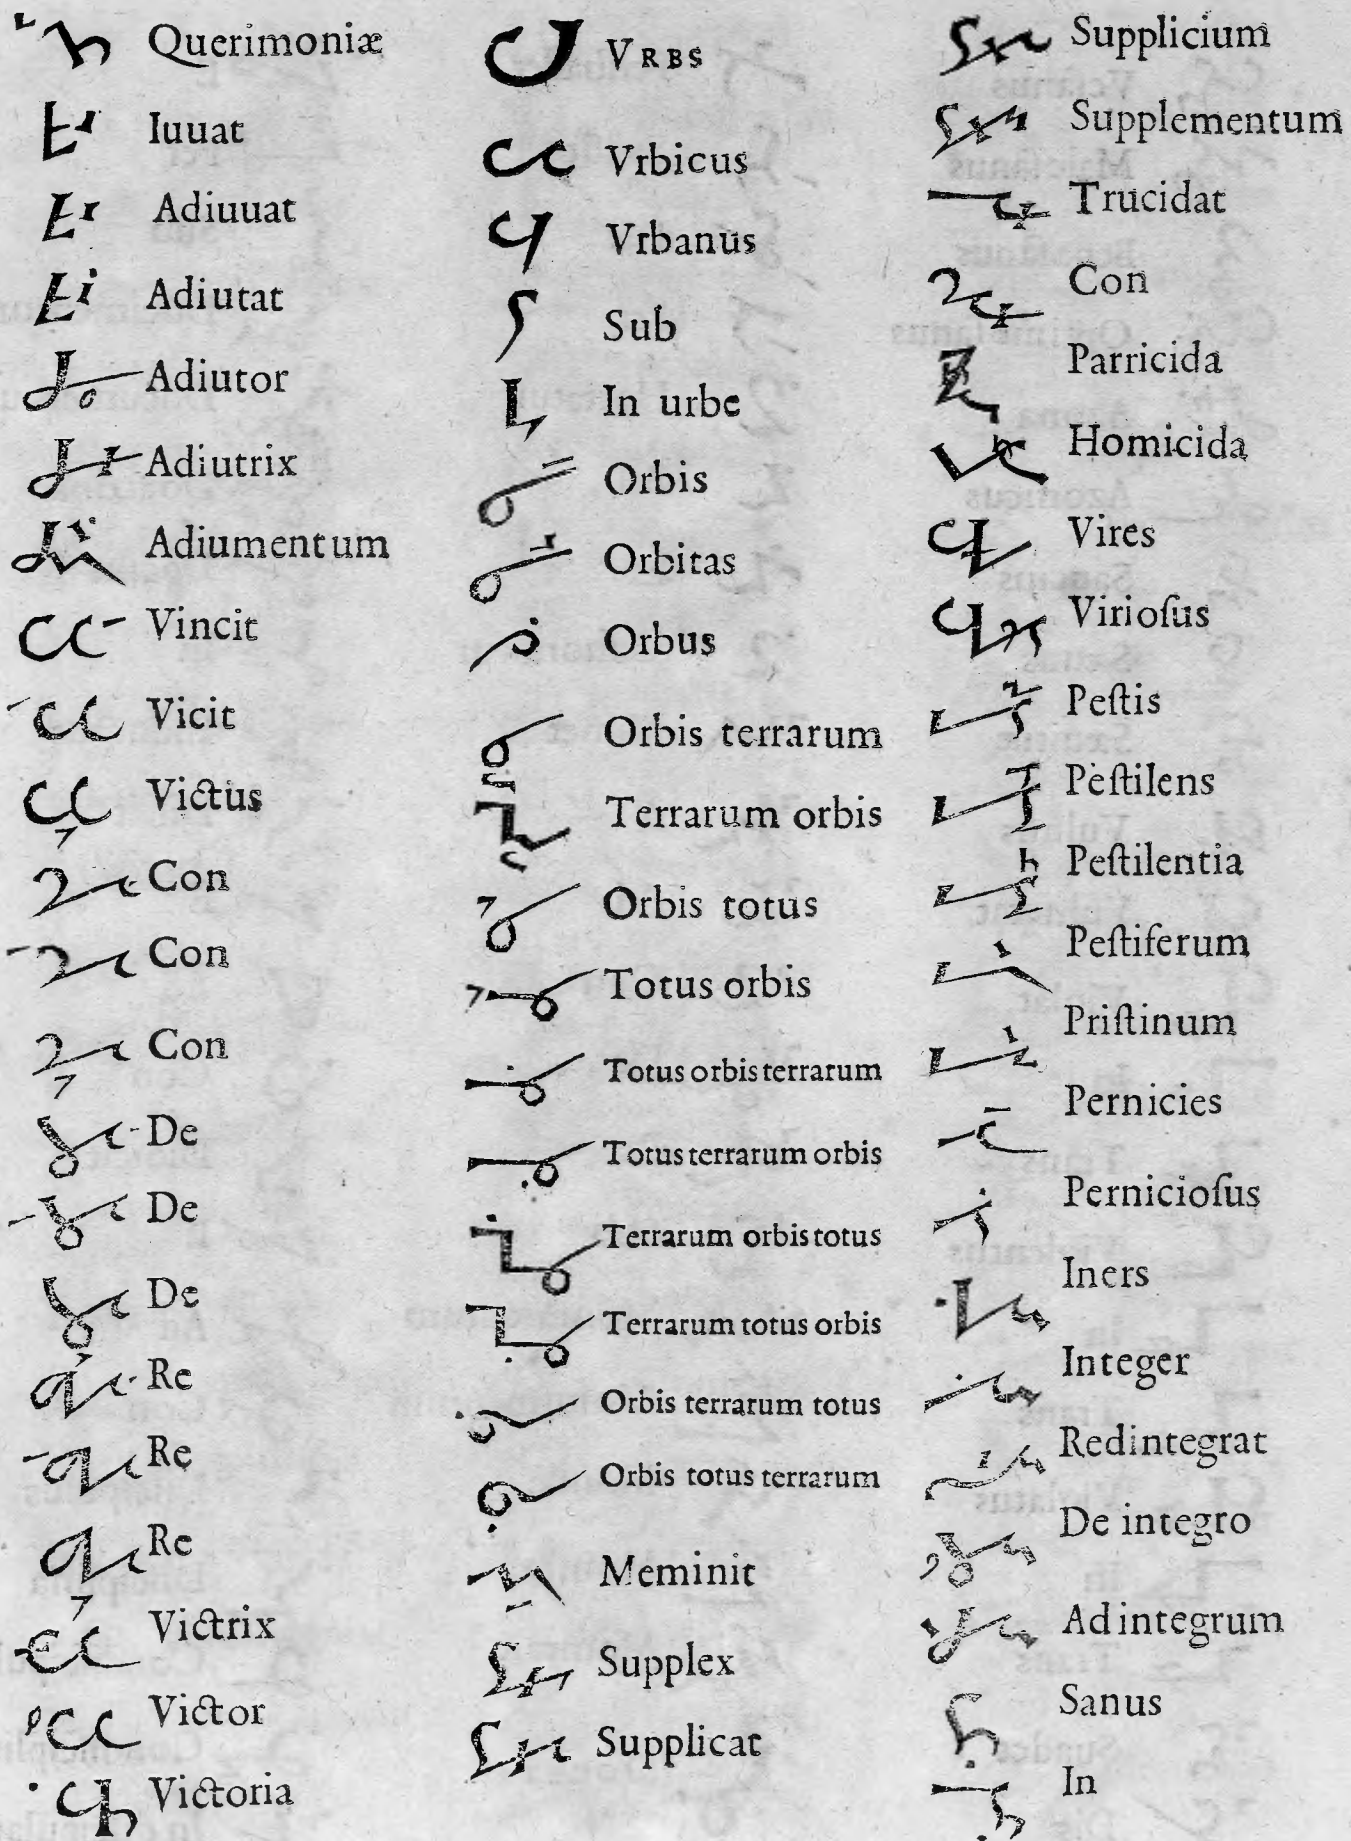 Querimoniæ
Iuuat
Adiuuat
Adiutat
Adiutor
Adiutrix
Adiumentum
Vincit
Vicit
Victus
Con
Con
Con
De
De
De
Re
Re
Re
Victrix
Victor
Victoria
VRBS
Vrbicus
Vrbanus
Sub
In urbe
Orbis
Orbitas
Orbus
Orbis terrarum
Terrarum orbis
Orbis totus
Totus orbis
Totus orbis terrarum
Totus terrarum orbis
Terrarum orbis totus
Terrarum totus orbis
Orbis terrarum totus
Orbis totus terrarum
Meminit
Supplex
Supplicat
Supplicium
Supplementum
Trucidat
Con
Parricida
Homicida
Vires
Virioſus
Peſtis
Peſtilens
Peſtilentia
Peſtiferum
Priſtinum
Pernicies
Pernicioſus
Iners
Integer
Redintegrat
De integro
Ad integrum
Sanus
In